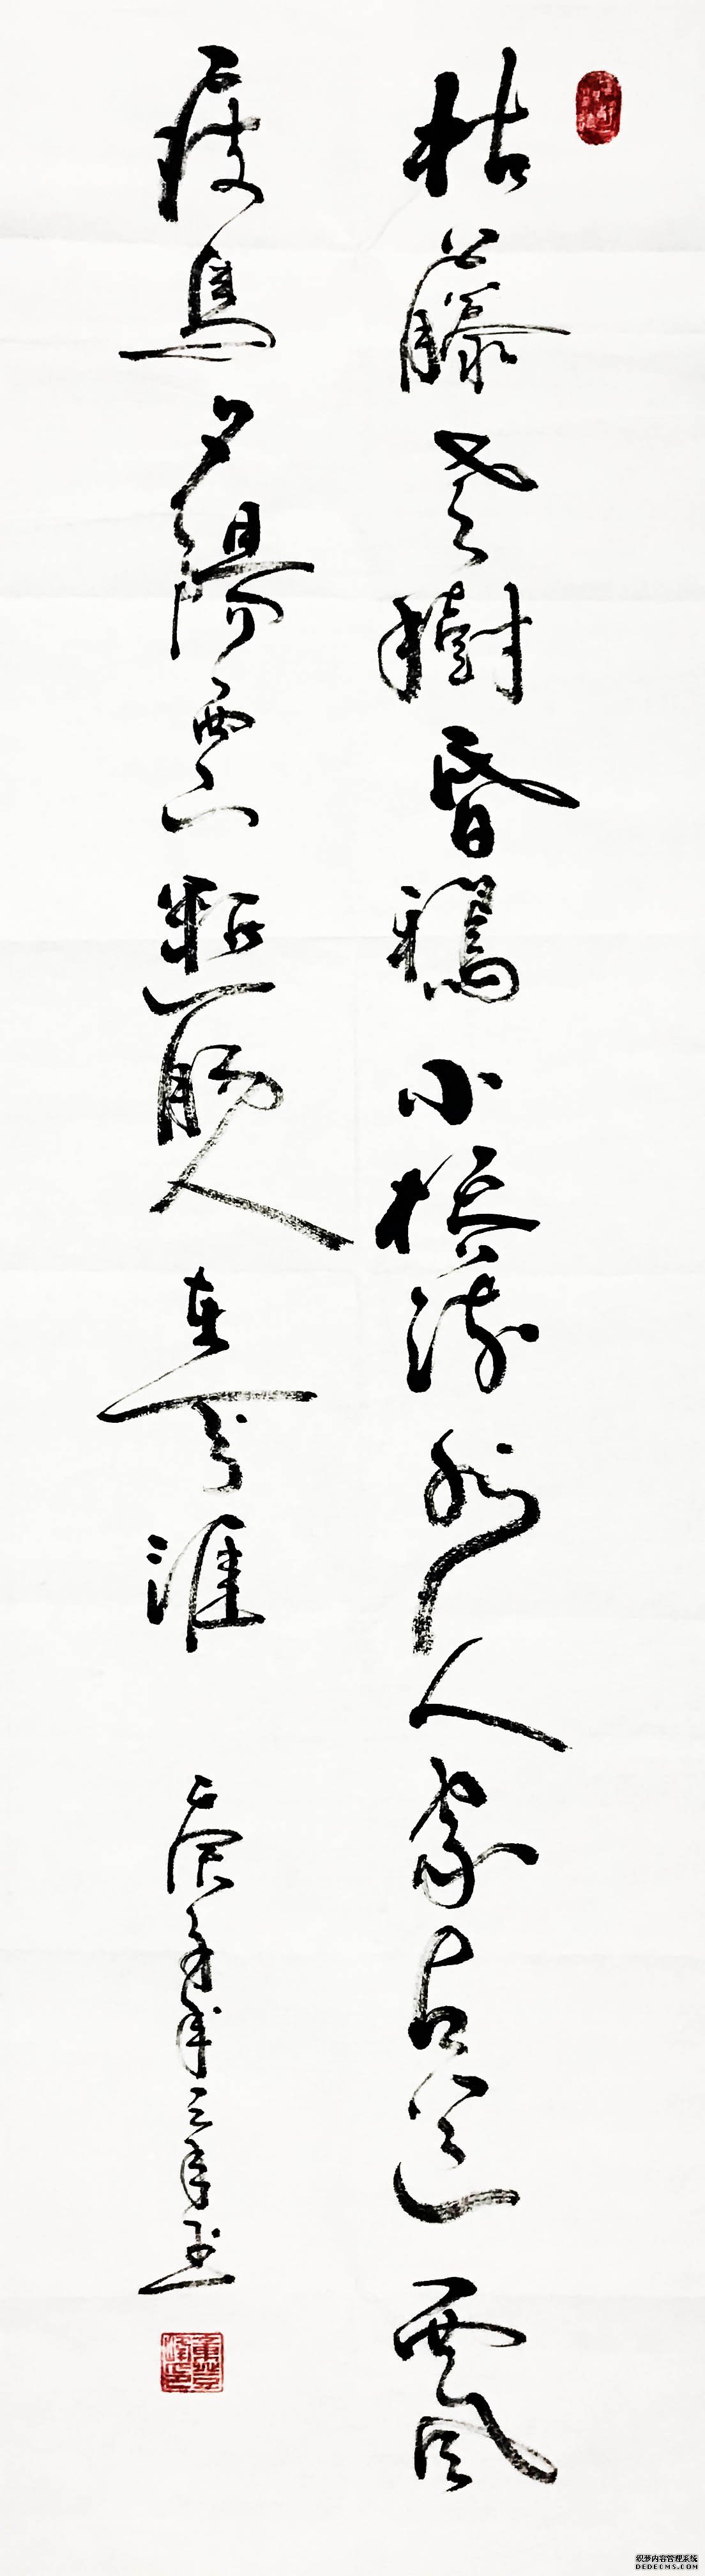 枯藤老樹昏鴉小橋流水人家古道西風
瘦馬夕陽西下斷腸人在天涯
织梦内容管理系统
DEDECMS.COM